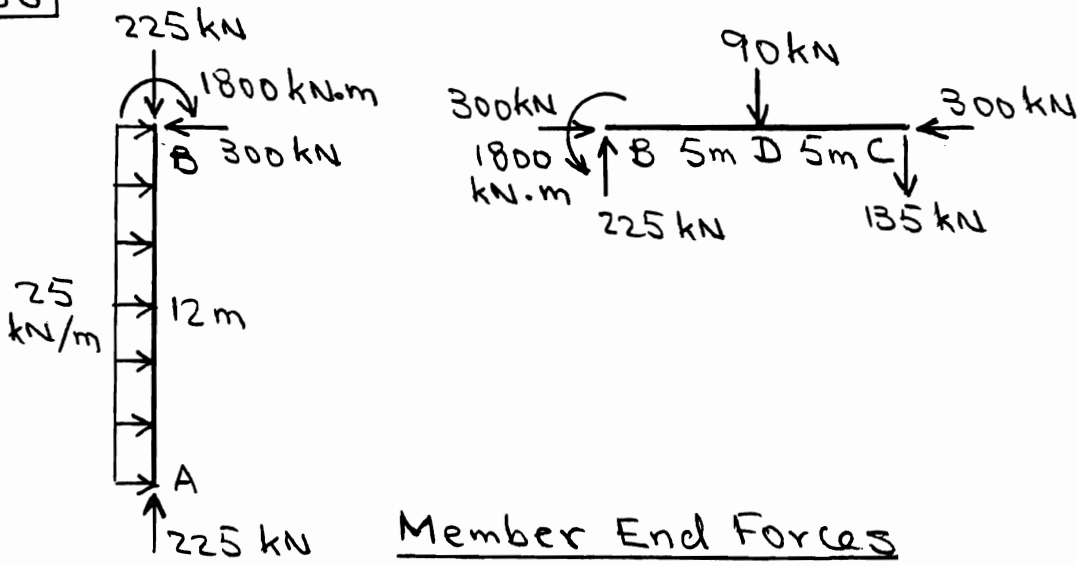 225 kN
1800 kN.m
B 300 kN
25
kN/m
12 m
A
225 kN
90 kN
300 kN
300 kN
1800
kN.m
B 5m D 5m C
225 kN
135 kN
Member End Forces